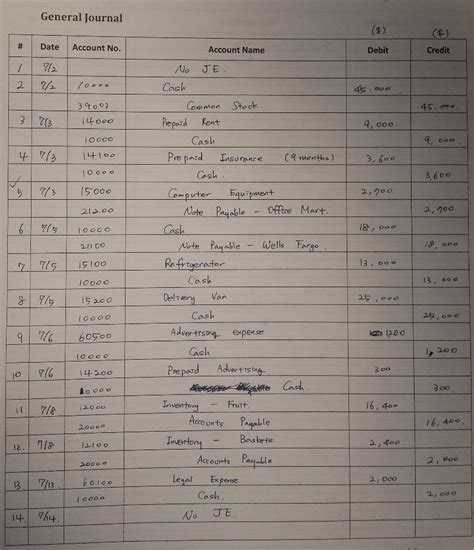 General Journal
($) ($)
# Date Account No. Account Name Debit Credit
1 7/2 No JE.
2 7/2 10000 Cash 45,000
Common Stock 45,000
3 7/3 14000 Prepaid Rent 9,000
10000 Cash 9,000
4 7/3 14100 Prepaid Insurance (9 months) 3,600
10000 Cash 3,600
✓
5 7/3 15000 Computer Equipment
21200 Note Payable - Office Mart.
6 7/5 10000 Cash 18,000
21100 Note Payable - Wells Fargo 18,000
7 7/5 15100 Refrigerator 13,000
10000 Cash 13,000
8 7/5 15200 Delivery Van 25,000
10000 Cash 25,000
9 7/6 60500 Advertising expense 1200
10000 Cash 1,200
10 7/6 14200 Prepaid Advertising 300
10000 Cash 300
11. 7/8 12000 Inventory - Fruit 16,400
20000 Accounts Payable 16,400
12. 7/8 12100 Inventory - Baskets 2,400
20000 Accounts Payable 2,400
13 7/13 60100 Legal Expense 2,000
10000 Cash 2,000
14. 7/14. No JE.